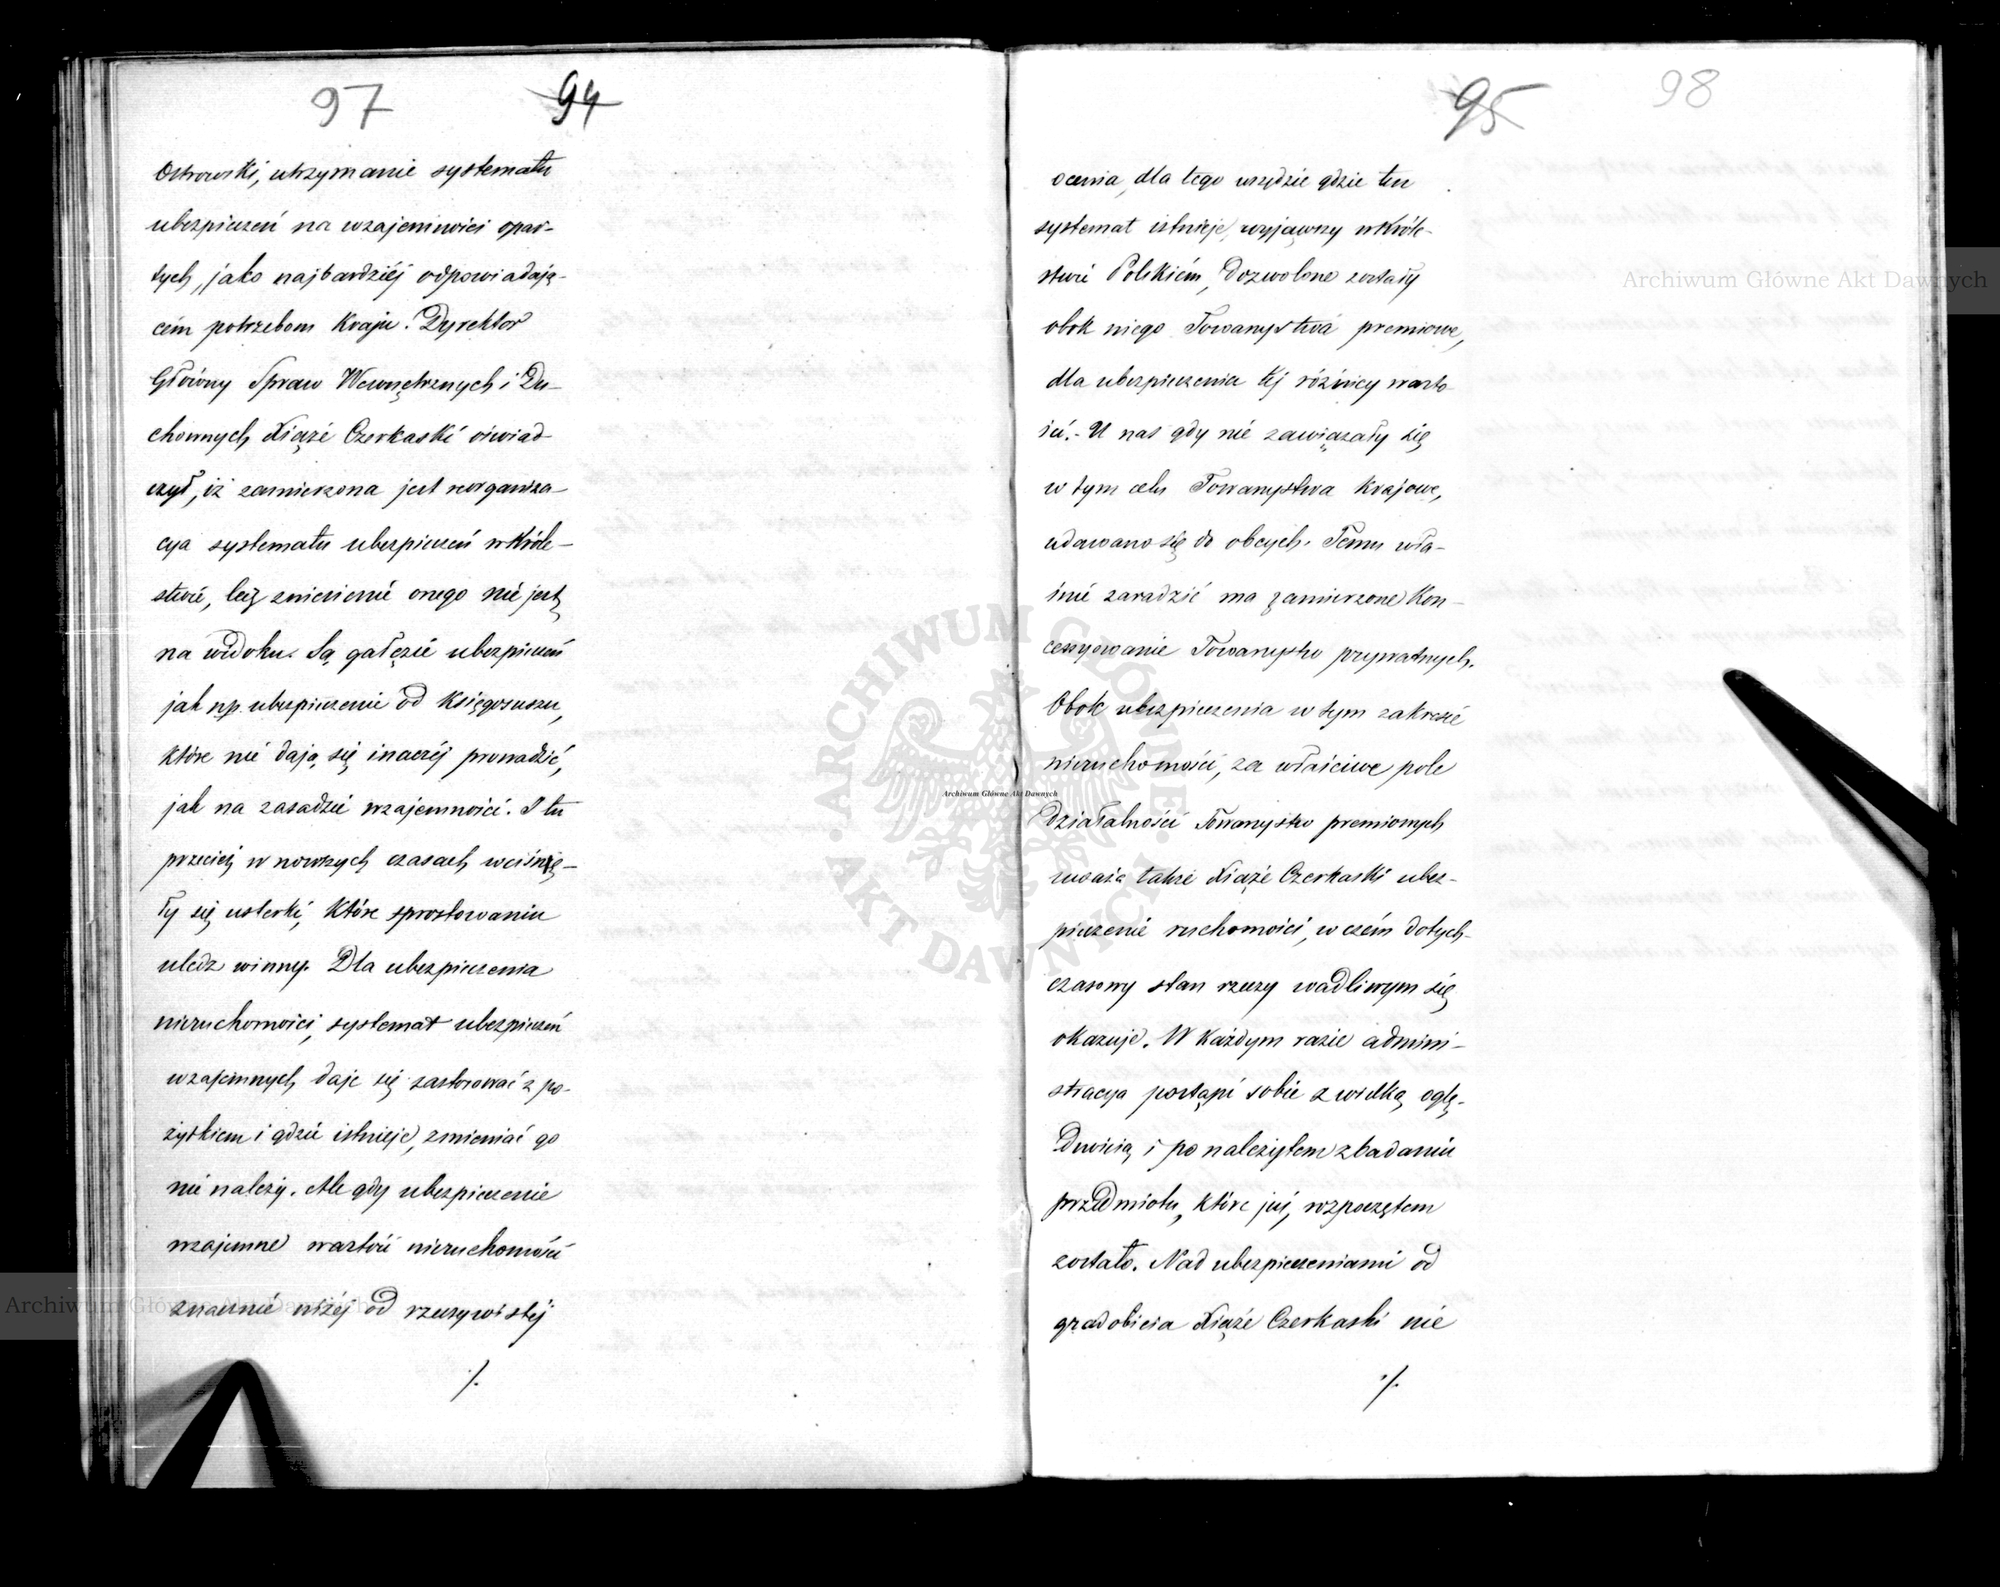 97 94
Ostrowski, utrzymanie systematu
ubezpieczeń na wzajemności opar-
tych, jako najbardziéj odpowiadają-
cém potrzebom Kraju. Dyrektor
Główny Spraw Wewnętrznych i Du-
chownych Xiąże Czerkaski oświad-
czył, iż zamierzona jest reorganiza-
cya systematu ubezpieczeń w Króle-
stwie, lecz zniesienie onego nie jest
na widoku. Są gałęzie ubezpieczeń
jak np. ubezpieczenie od Księgosuszu,
które nie dają się inaczéj prowadzić,
jak na zasadzie wzajemności. I tu
przecież w nowszych czasach wcisnę-
ły się usterki, które sprostowaniu
uledz winny. Dla ubezpieczenia
nieruchomości, systemat ubezpieczeń
wzajemnych daje się zastosować z po-
żytkiem i gdzie istnieje, zmieniać go
nie należy. Ale gdy ubezpieczenie
wzajemne wartość nieruchomości
znacznie niżéj od rzeczywistéj
./.
95 98
ocenia, dla tego wszędzie gdzie ten
systemat istnieje, wyjąwszy w Króle-
stwie Polskiém, dozwolone zostały
obok niego Towarzystwa premiowe,
dla ubezpieczenia téj różnicy warto-
ści.- U nas gdy nie zawiązały się
w tym celu Towarzystwa Krajowe,
udawano się do obcych. Temu wła-
śnie zaradzić ma zamierzone Kon-
cessyowanie Towarzystw prywatnych.
Obok ubezpieczenia w tym zakresie
nieruchomości, za właściwe pole
działalności Towarzystw premiowych
uważa także Xiąże Czerkaski ubez-
pieczenie ruchomości, w czém dotych-
czasowy stan rzeczy wadliwym się
okazuje. W każdym razie admini-
stracya postąpi sobie z wielką oglę-
dnością i po należytem zbadaniu
przedmiotu, które już rozpoczętem
zostało. Nad ubezpieczeniami od
gradobicia Xiąże Czerkaski nie
./.
Archiwum Główne Akt Dawnych
Archiwum Główne Akt Dawnych
Archiwum Główne Akt Dawnych
ARCHIWUM GŁÓWNE AKT DAWNYCH